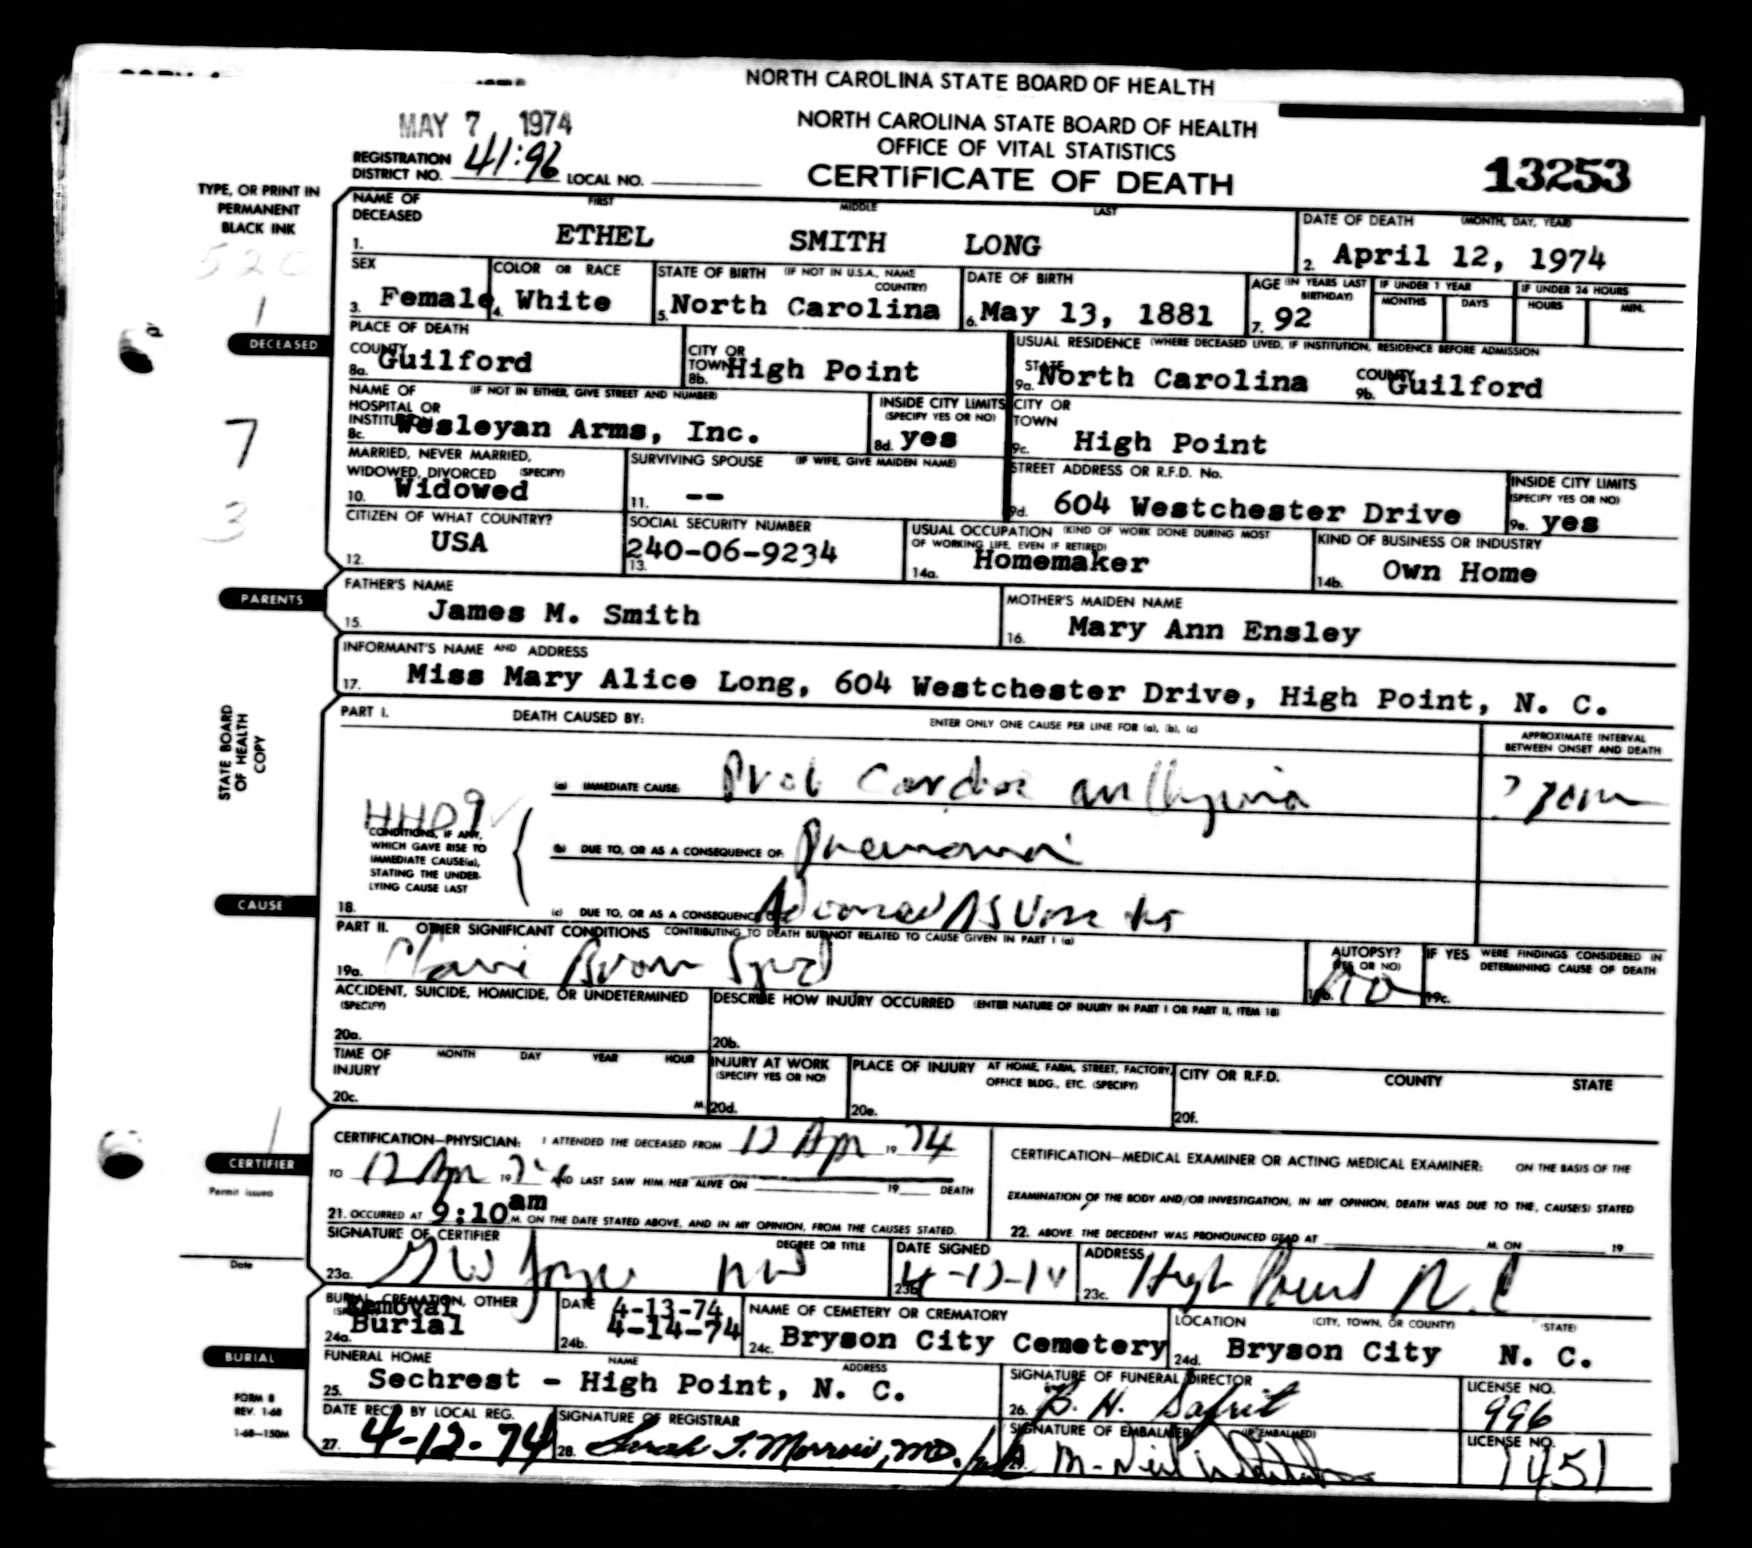 NORTH CAROLINA STATE BOARD OF HEALTH
MAY 7 1974
NORTH CAROLINA STATE BOARD OF HEALTH
OFFICE OF VITAL STATISTICS
CERTIFICATE OF DEATH
13253
REGISTRATION DISTRICT NO. 41:96 LOCAL NO.
TYPE, OR PRINT IN
PERMANENT
BLACK INK
520
1
7
3
DECEASED
NAME OF DECEASED FIRST MIDDLE LAST
1. ETHEL SMITH LONG
DATE OF DEATH (MONTH, DAY, YEAR)
2. April 12, 1974
SEX
3. Female
COLOR OR RACE
4. White
STATE OF BIRTH (IF NOT IN U.S.A., NAME COUNTRY)
5. North Carolina
DATE OF BIRTH
6. May 13, 1881
AGE (IN YEARS LAST BIRTHDAY)
7. 92
IF UNDER 1 YEAR
MONTHS DAYS
IF UNDER 24 HOURS
HOURS MIN.
PLACE OF DEATH
COUNTY
8a. Guilford
CITY OR TOWN
8b. High Point
USUAL RESIDENCE (WHERE DECEASED LIVED, IF INSTITUTION, RESIDENCE BEFORE ADMISSION
STATE
9a. North Carolina
COUNTY
9b. Guilford
NAME OF HOSPITAL OR INSTITUTION (IF NOT IN EITHER, GIVE STREET AND NUMBER)
8c. Wesleyan Arms, Inc.
INSIDE CITY LIMITS (SPECIFY YES OR NO)
8d. yes
CITY OR TOWN
9c. High Point
MARRIED, NEVER MARRIED, WIDOWED, DIVORCED (SPECIFY)
10. Widowed
SURVIVING SPOUSE (IF WIFE, GIVE MAIDEN NAME)
11. --
STREET ADDRESS OR R.F.D. No.
9d. 604 Westchester Drive
INSIDE CITY LIMITS (SPECIFY YES OR NO)
9e. yes
CITIZEN OF WHAT COUNTRY?
12. USA
SOCIAL SECURITY NUMBER
13. 240-06-9234
USUAL OCCUPATION (KIND OF WORK DONE DURING MOST OF WORKING LIFE, EVEN IF RETIRED)
14a. Homemaker
KIND OF BUSINESS OR INDUSTRY
14b. Own Home
PARENTS
FATHER'S NAME
15. James M. Smith
MOTHER'S MAIDEN NAME
16. Mary Ann Ensley
INFORMANT'S NAME AND ADDRESS
17. Miss Mary Alice Long, 604 Westchester Drive, High Point, N. C.
STATE BOARD
OF HEALTH
COPY
PART I. DEATH CAUSED BY: ENTER ONLY ONE CAUSE PER LINE FOR (a), (b), (c)
APPROXIMATE INTERVAL BETWEEN ONSET AND DEATH
(a) IMMEDIATE CAUSE: Prob Cardiac
HHD9
CONDITIONS, IF ANY,
WHICH GAVE RISE TO
IMMEDIATE CAUSE(a),
STATING THE UNDER-
LYING CAUSE LAST
(b) DUE TO, OR AS A CONSEQUENCE OF: Pneumonia
CAUSE
18. (c) DUE TO, OR AS A CONSEQUENCE OF: Advanced
PART II. OTHER SIGNIFICANT CONDITIONS CONTRIBUTING TO DEATH BUT NOT RELATED TO CAUSE GIVEN IN PART I (a)
19a. Brain Synd
AUTOPSY? (YES OR NO)
19b. No
IF YES WERE FINDINGS CONSIDERED IN DETERMINING CAUSE OF DEATH
19c.
ACCIDENT, SUICIDE, HOMICIDE, OR UNDETERMINED (SPECIFY)
20a.
DESCRIBE HOW INJURY OCCURRED (ENTER NATURE OF INJURY IN PART I OR PART II, ITEM 18)
20b.
TIME OF INJURY MONTH DAY YEAR HOUR
20c. M.
INJURY AT WORK (SPECIFY YES OR NO)
20d.
PLACE OF INJURY AT HOME, FARM, STREET, FACTORY, OFFICE BLDG., ETC. (SPECIFY)
20e.
CITY OR R.F.D. COUNTY STATE
20f.
CERTIFIER
Permit issued
Date
CERTIFICATION—PHYSICIAN: I ATTENDED THE DECEASED FROM 12 Apr 19 74
TO 12 Apr 19 74 AND LAST SAW HIM/HER ALIVE ON 19 DEATH
21. OCCURRED AT 9:10 am M. ON THE DATE STATED ABOVE, AND IN MY OPINION, FROM THE CAUSES STATED.
CERTIFICATION—MEDICAL EXAMINER OR ACTING MEDICAL EXAMINER: ON THE BASIS OF THE
EXAMINATION OF THE BODY AND/OR INVESTIGATION, IN MY OPINION, DEATH WAS DUE TO THE, CAUSE(S) STATED
22. ABOVE. THE DECEDENT WAS PRONOUNCED DEAD AT M. ON 19
SIGNATURE OF CERTIFIER DEGREE OR TITLE
23a. GW Joyce MD
DATE SIGNED
23b. 4-12-74
ADDRESS
23c. High Point N.C
BURIAL
BURIAL, CREMATION, OTHER (SPECIFY)
24a. Removal
Burial
DATE
24b. 4-13-74
4-14-74
NAME OF CEMETERY OR CREMATORY
24c. Bryson City Cemetery
LOCATION (CITY, TOWN, OR COUNTY) (STATE)
24d. Bryson City N. C.
FUNERAL HOME NAME ADDRESS
25. Sechrest - High Point, N. C.
SIGNATURE OF FUNERAL DIRECTOR
26. B. H. Safrit
LICENSE NO.
996
FORM 8
REV. 1-68
1-68—150M
DATE REC'D BY LOCAL REG.
27. 4-12-74
SIGNATURE OF REGISTRAR
28. Sarah T. Morrow, MD.
SIGNATURE OF EMBALMER (IF EMBALMED)
LICENSE NO.
1451